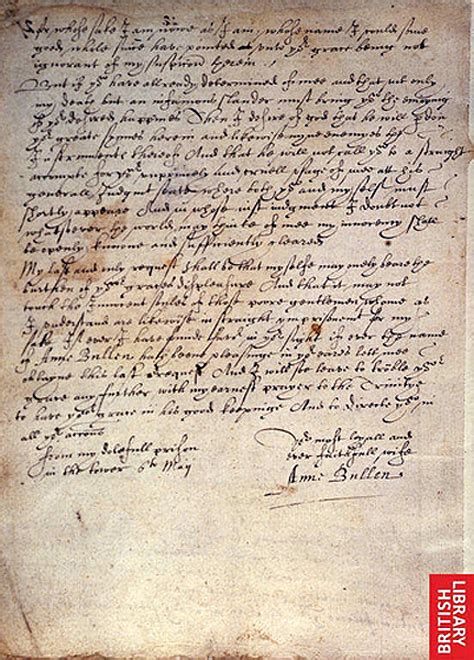 for whose sake I am nowe as I am, whose name I could since
good while since have poynted unto yor grace being not
ignorant of my suspicion therein
But if yow have allready determined of mee and that not only
my deate but an infamous slander must bring yow the enioying
of yor desyred happines Then I desire of god that he will pardon
yor great synnes herein and likewise myne enemyes the
Instruments thereof And that he will not call yow to a straight
accompte for yor unprincely and cruell usage of mee at his
generall Judgmt seate where both yow and my selfe must
shortly appeare And in whose iust Judgmt I doubt not
whatsoever the world may think of mee my innocency shall
be openly knowne and sufficiently cleared
My last and only request shall be that my selfe may onely beare the
burthen of yor graces displeasure And that it may not
touch the Innocent soules of those poore gentlemen whome as
I understand are likewise in straight imprisonment for my
sake If ever I have found favor in yor sight if ever the name
of Anne Bullen have been pleasinge in yor eares lett mee
obtayne this last request And I will soe leave to trouble yor
grace any further with my earnest prayer to the Trinitye
to have yor grace in his good keepinge And to directe yow in
all yor actions
from my dolefull prison
in the tower 6th May
Yor most loyall and
ever faithfull wife
Anne Bullen
BRITISH
LIBRARY